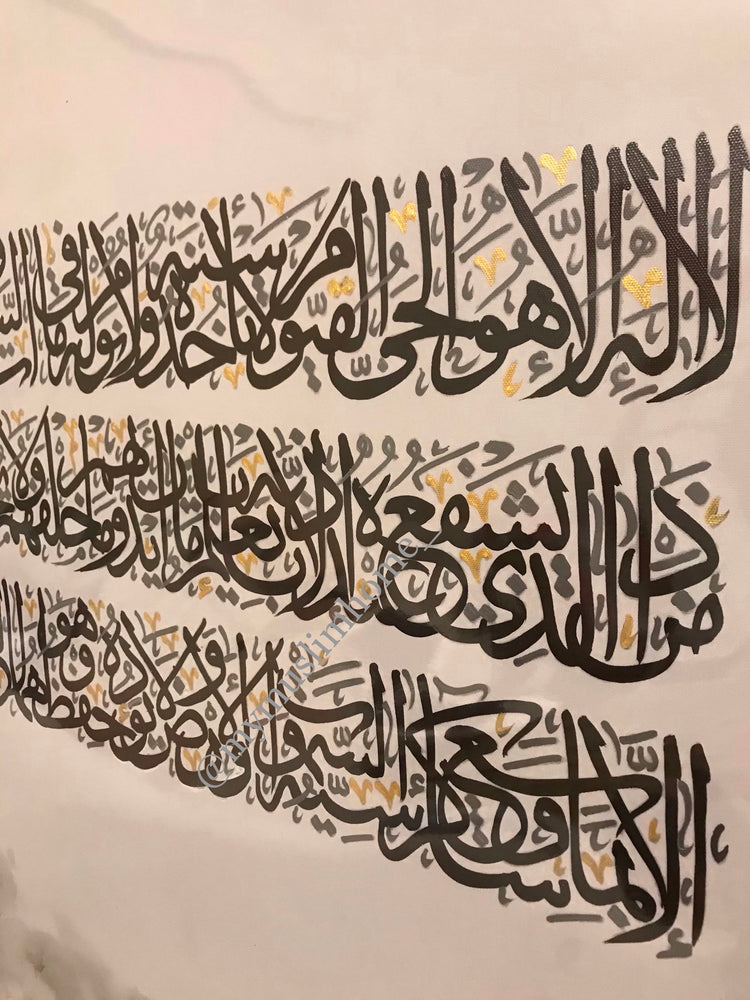 لا إله إلا هو الحي القيوم لا تأخذه سنة ولا نوم له ما في
من ذا الذي يشفع عنده إلا بإذنه يعلم ما بين أيديهم وما خلفهم ولا
إلا بما شاء وسع كرسيه السموات والأرض ولا يؤده حفظهما وهو
@mymuslimhome_